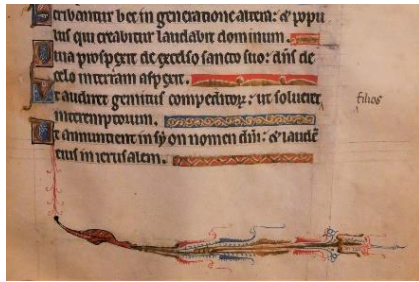 cribantur hec in generatione altera: & popu
lus qui creabitur laudabit dominum.
Quia prospexit de excelso sancto suo: dn̄s de
celo in terram aspexit.
Ut audiret gemitus compeditoꝝ: ut solueret
filios
interemptorum.
Ut annuntient in syon nomen dn̄i: & laudē
eius in ierusalem.